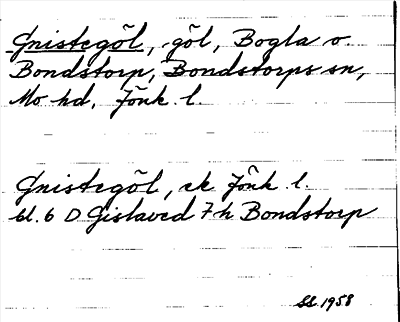 Gnistegöl, göl, Bogla o.
Bondstorp, Bondstorps sn,
Mo hd, Jönk. l.
Gnistegöl, ek Jönk l.
bl. 6 D Gislaved 7 h Bondstorp
SS. 1958